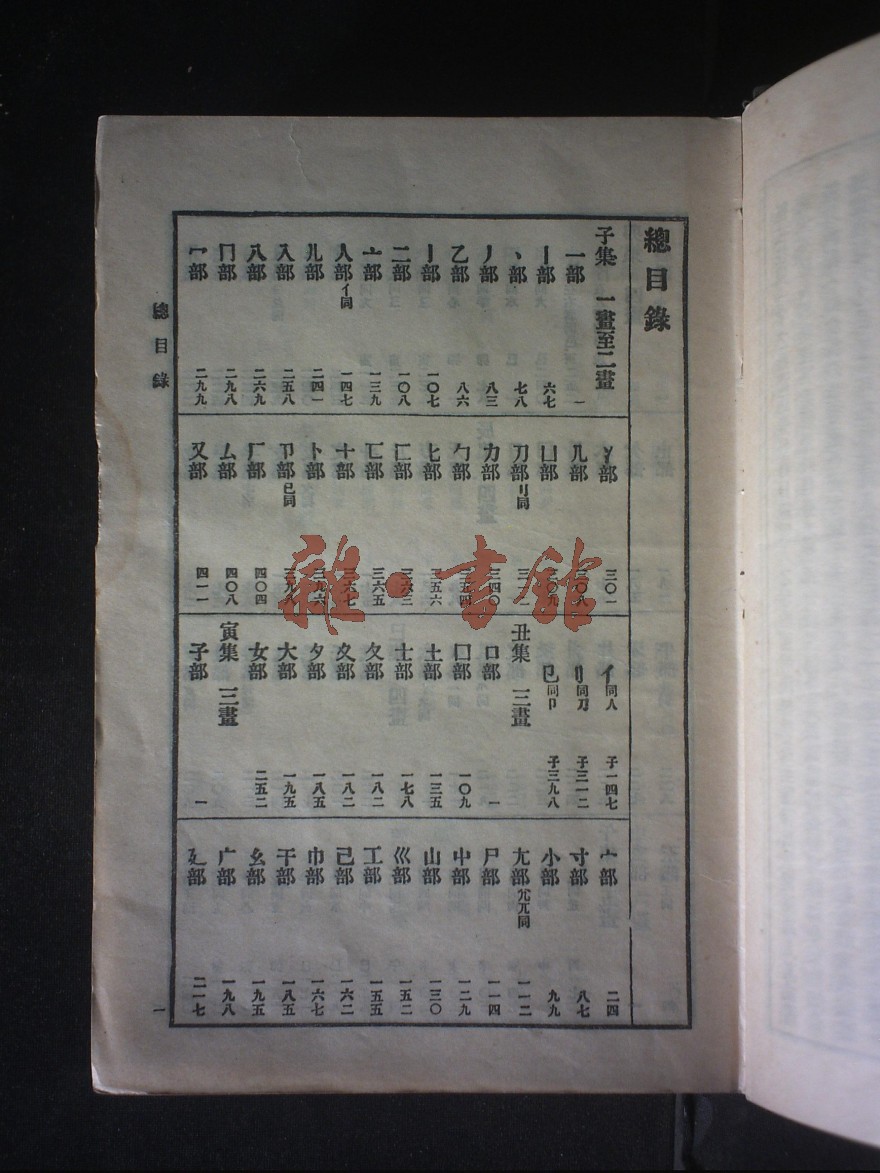 總目錄
子集 一畫至二畫
一部 一
丨部 六七
丶部 七八
丿部 八三
乙部 八六
亅部 一〇七
二部 一〇八
亠部 一三九
人部亻同 一四七
儿部 二四一
入部 二五八
八部 二六九
冂部 二九八
冖部 二九九
冫部 三〇一
几部 三〇八
凵部 三〇九
刀部刂同 三一二
力部 三四〇
勹部 三五四
匕部 三五六
匚部 三六三
匸部 三六五
十部 三六七
卜部 三九六
卩部㔾同 三九八
厂部 四〇四
厶部 四〇八
又部 四一一
亻同人 子一四七
刂同刀 子三一二
㔾同卩 子三九八
丑集 三畫
口部 一
囗部 一〇九
土部 一三五
士部 一七八
夂部 一八二
夊部 一八二
夕部 一八五
大部 一九五
女部 二五二
寅集 三畫
子部 一
宀部 二四
寸部 八七
小部 九九
尢部尣兀同 一一二
尸部 一一四
屮部 一二九
山部 一三〇
巛部 一五二
工部 一五五
己部 一六二
巾部 一六七
干部 一八五
幺部 一九五
广部 一九八
廴部 二一七
總目錄
一
雜·書館